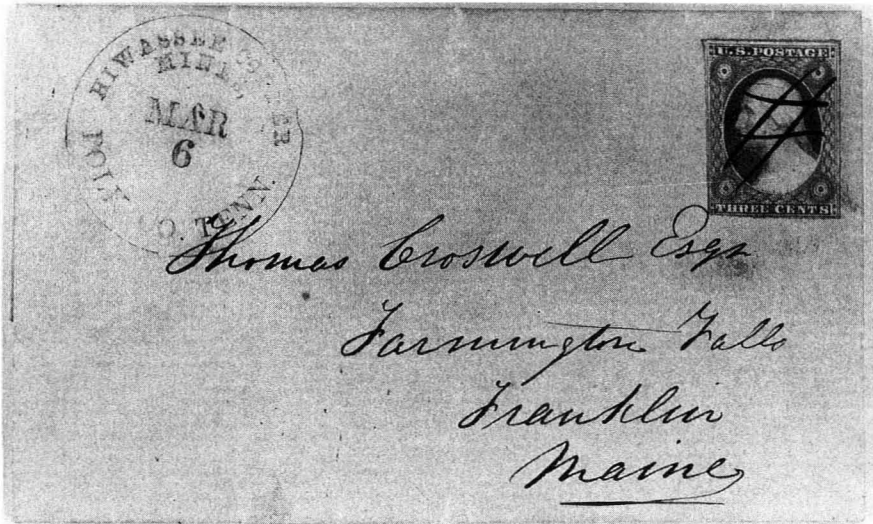 HIWASSEE COPPER
MINE,
MAR
6
POLK CO. TENN.
U.S. POSTAGE
THREE CENTS
Thomas Croswell Esqr
Farmington Falls
Franklin
Maine